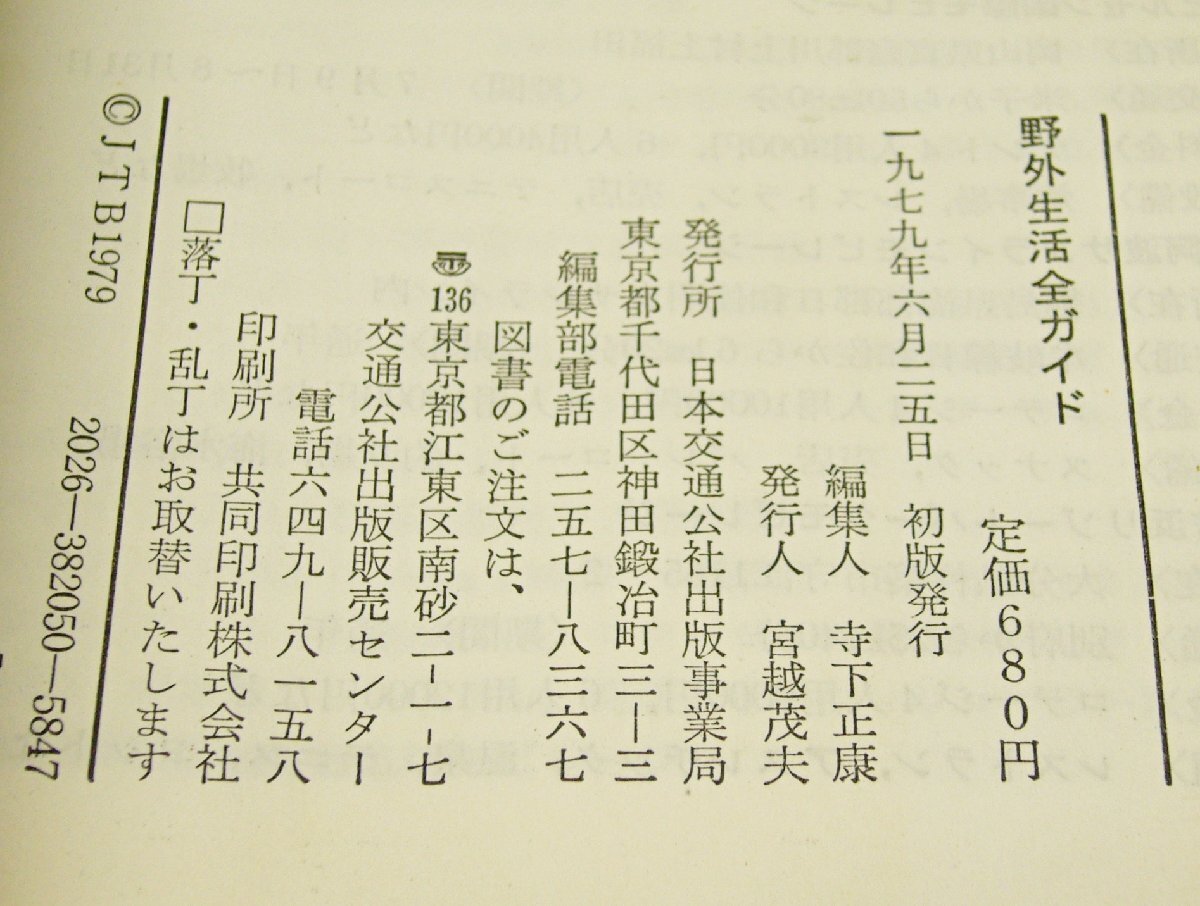 野外生活全ガイド
定価680円
一九七九年六月二五日 初版発行
編集人 寺下正康
発行人 宮越茂夫
発行所 日本交通公社出版事業局
東京都千代田区神田鍛冶町三ー三
編集部電話 二五七ー八三六七
図書のご注文は、
〠136東京都江東区南砂二ー一ー七
交通公社出版販売センター
電話六四九ー八一五八
印刷所 共同印刷株式会社
□落丁・乱丁はお取替いたします
©JTB1979
2026—382050—5847